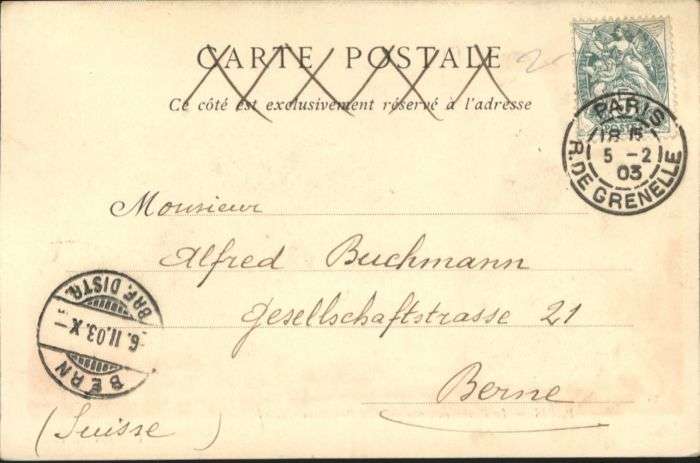 CARTE POSTALE
Ce côté est exclusivement réservé à l'adresse
PARIS
18 15
5 -2
03
R. DE GRENELLE
Monsieur
Alfred Buchmann
Gesellschaftstrasse 21
Berne
(Suisse)
BRF. DISTR.
6. II. 03. X-
BERN